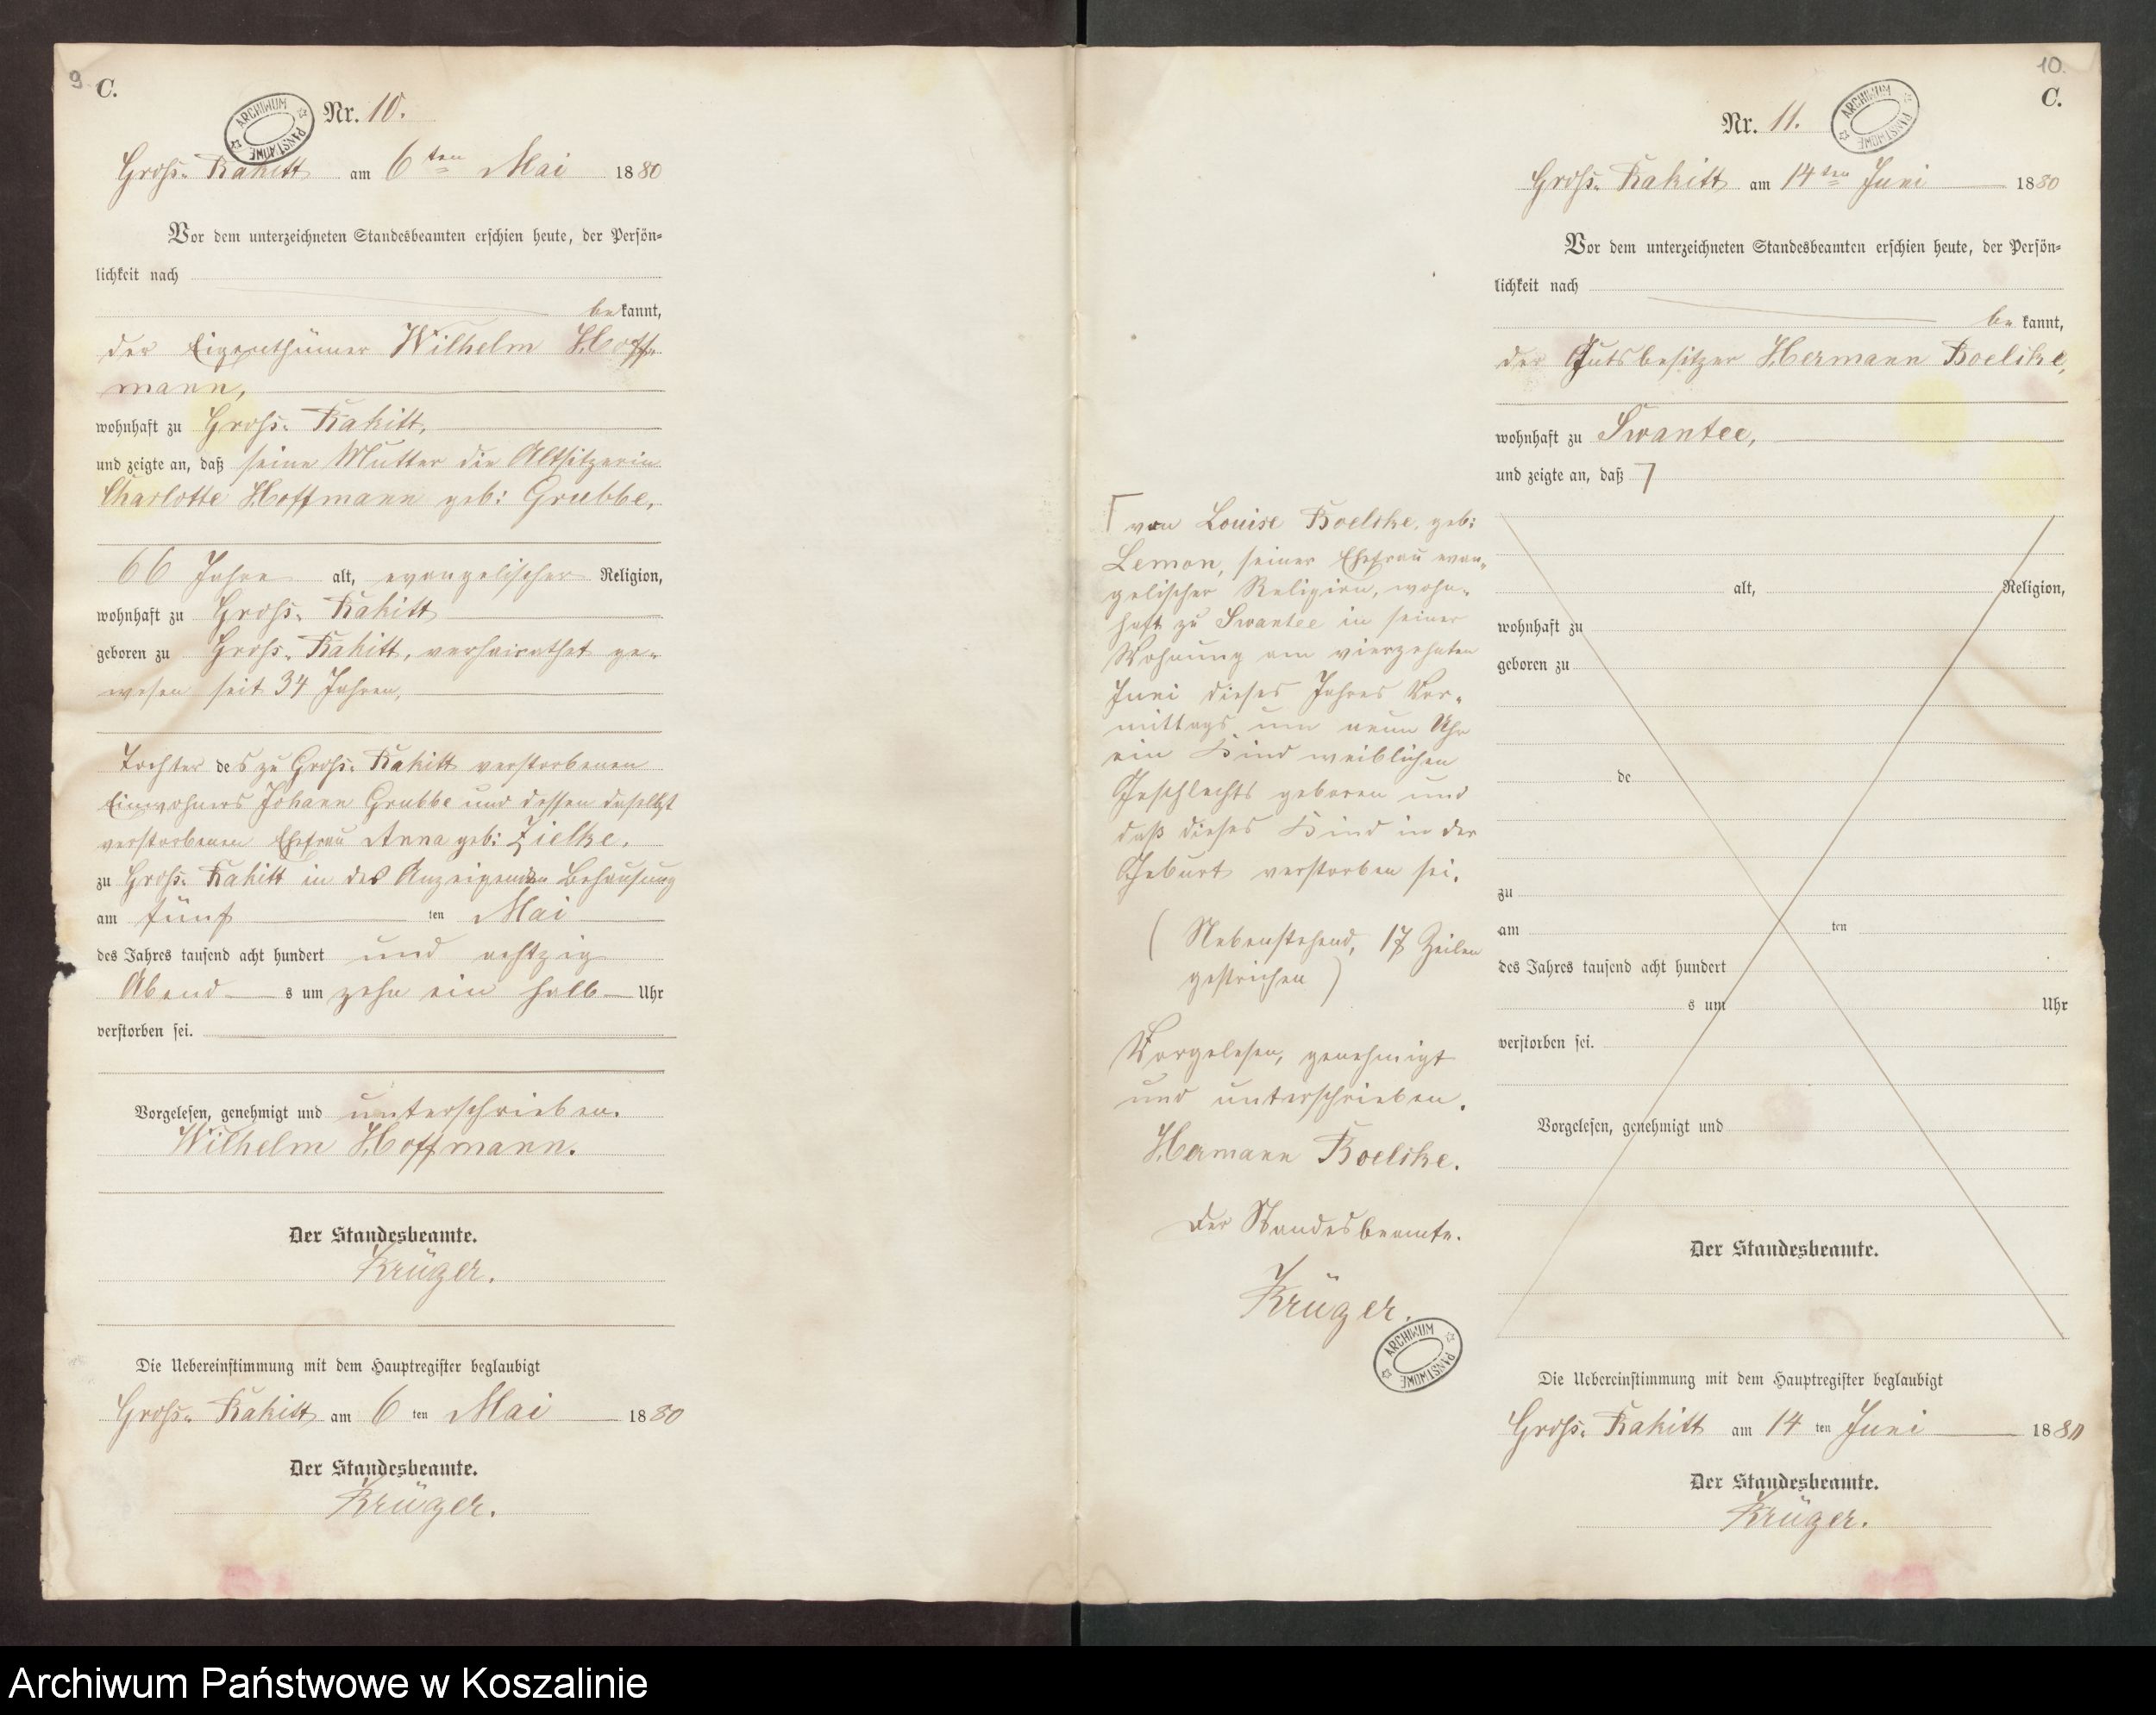 9
C.
ARCHIWUM PAŃSTWOWE
Nr. 10.
Groß-Rakitt am 6ten Mai 1880
Vor dem unterzeichneten Standesbeamten erschien heute, der Persön-
lichkeit nach
bekannt,
der Eigenthümer Wilhelm Hoff-
mann,
wohnhaft zu Groß-Rakitt,
und zeigte an, daß seine Mutter die Altsitzerin
Charlotte Hoffmann geb: Grubbe,
66 Jahre alt, evangelischer Religion,
wohnhaft zu Groß-Rakitt
geboren zu Groß-Rakitt, verheirathet ge-
wesen seit 34 Jahren,
Tochter des zu Groß-Rakitt verstorbenen
Einwohners Johann Grubbe und dessen daselbst
verstorbenen Ehefrau Anna geb: Zielke.
zu Groß-Rakitt in des Anzeigenden Behausung
am fünf ten Mai
des Jahres tausend acht hundert und achtzig
Abend s um zehn ein halb Uhr
verstorben sei.
Vorgelesen, genehmigt und unterschrieben.
Wilhelm Hoffmann.
Der Standesbeamte.
Krüger.
Die Uebereinstimmung mit dem Hauptregister beglaubigt
Groß-Rakitt am 6 ten Mai 1880
Der Standesbeamte.
Krüger.
10.
C.
Nr. 11.
ARCHIWUM PAŃSTWOWE
Groß-Rakitt am 14ten Juni 1880
Vor dem unterzeichneten Standesbeamten erschien heute, der Persön-
lichkeit nach
bekannt,
der Gutsbesitzer Hermann Boelcke,
wohnhaft zu Swantee,
und zeigte an, daß ⁊
Γ von Louise Boelcke, geb:
Lemon, seiner Ehefrau evan-
gelischer Religion, wohn-
haft zu Swantee in seiner
Wohnung am vierzehnten
Juni dieses Jahres Vor-
mittags um neun Uhr
ein Kind weiblichen
Geschlechts geboren und
daß dieses Kind in der
Geburt verstorben sei.
(Nebenstehend, 17 Zeilen
gestrichen)
Vorgelesen, genehmigt
und unterschrieben.
Hermann Boelcke.
Der Standesbeamte.
Krüger.
ARCHIWUM PAŃSTWOWE
alt, Religion,
wohnhaft zu
geboren zu
de
zu
am ten
des Jahres tausend acht hundert
s um Uhr
verstorben sei.
Vorgelesen, genehmigt und
Der Standesbeamte.
Die Uebereinstimmung mit dem Hauptregister beglaubigt
Groß-Rakitt am 14 ten Juni 1880
Der Standesbeamte.
Krüger.
Archiwum Państwowe w Koszalinie